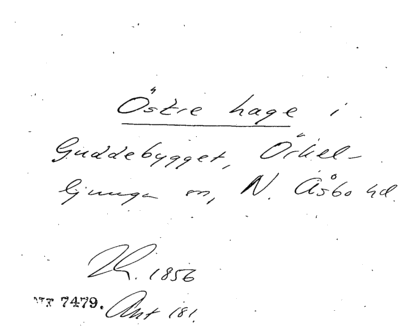 Östre hage i
Guddebygget, Örkel-
ljunga sn, N. Åsbo hd.
Lh. 1856
MF 7479. Ant 181.